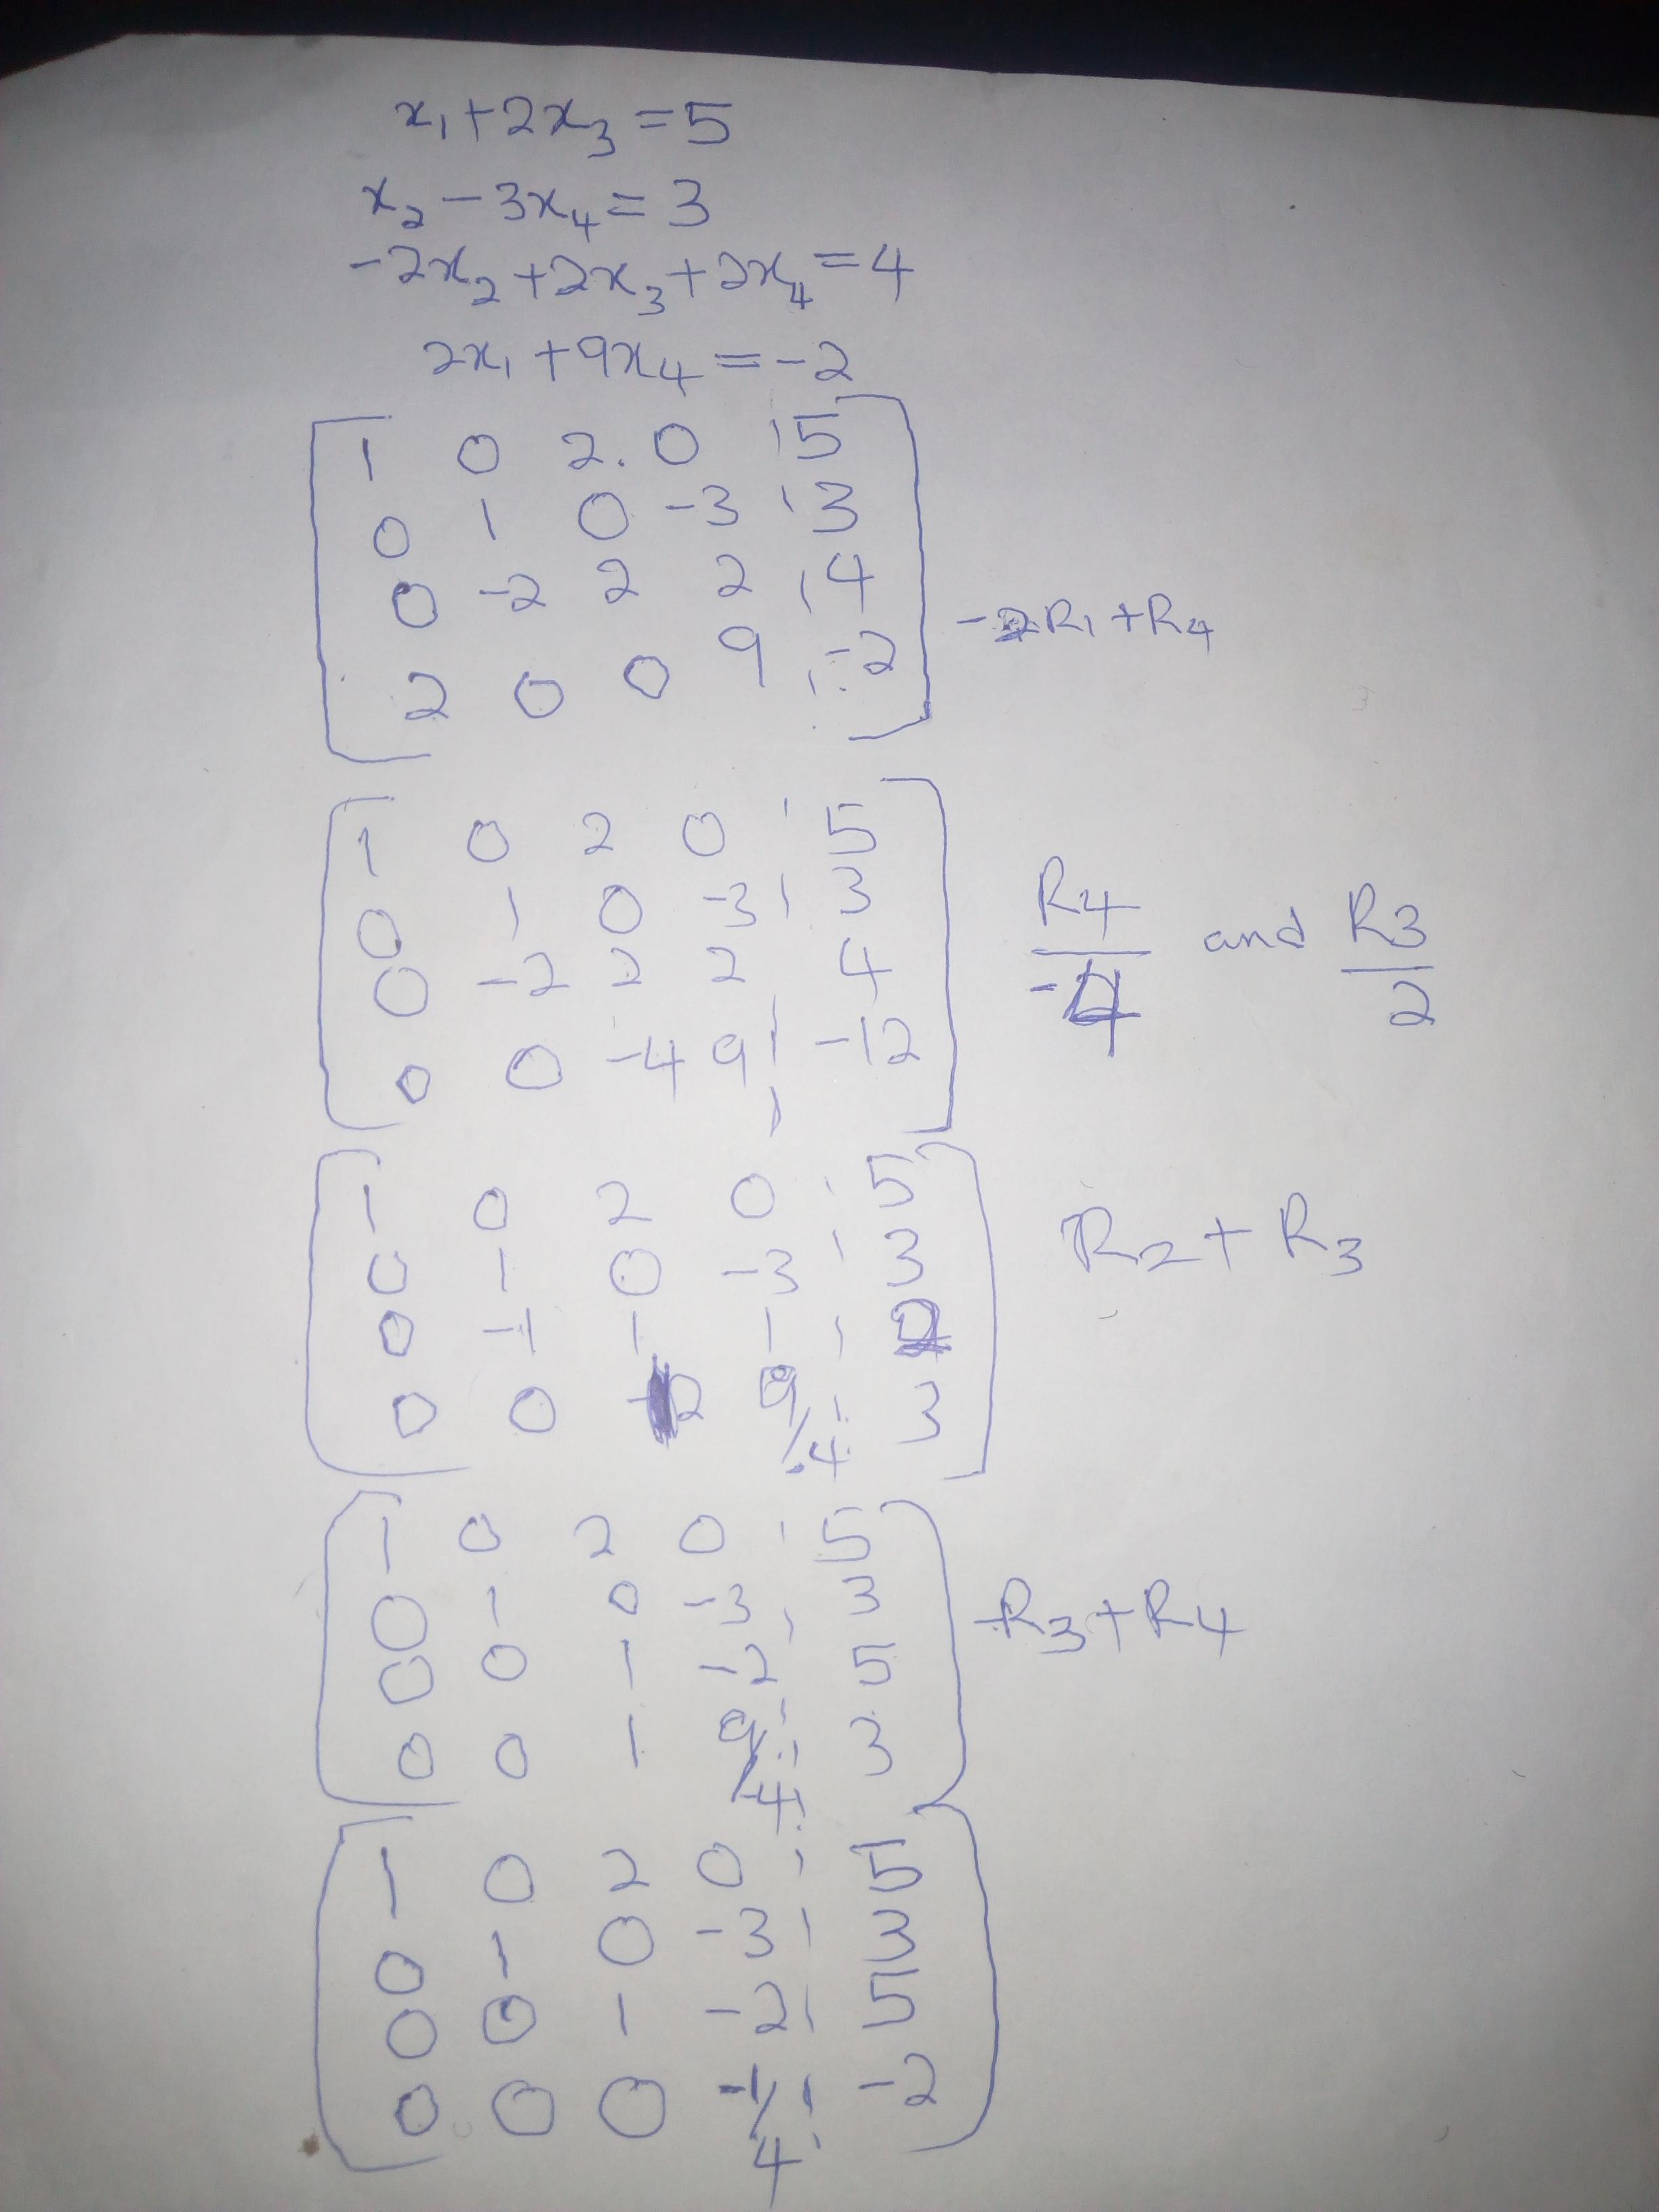 x₁+2x₃=5
x₂-3x₄=3
-2x₂+2x₃+2x₄=4
2x₁+9x₄=-2
1 0 2. 0 ¦ 5
0 1 0 -3 ¦ 3
0 -2 2 2 ¦ 4
2 0 0 9 ¦ -2
-2R₁+R₄
1 0 2 0 ¦ 5
0 1 0 -3 ¦ 3
0 -2 2 2 ¦ 4
0 0 -4 9 ¦ -12
R4/-4 and R3/2
1 0 2 0 ¦ 5
0 1 0 -3 ¦ 3
0 -1 1 1 ¦ 2
0 0 9/-4 ¦ 3
R₂+R₃
1 0 2 0 ¦ 5
0 1 0 -3 ¦ 3
0 0 1 -2 ¦ 5
0 0 1 9/-4 ¦ 3
-R₃+R₄
1 0 2 0 ¦ 5
0 1 0 -3 ¦ 3
0 0 1 -2 ¦ 5
0 0 0 -1/4 ¦ -2